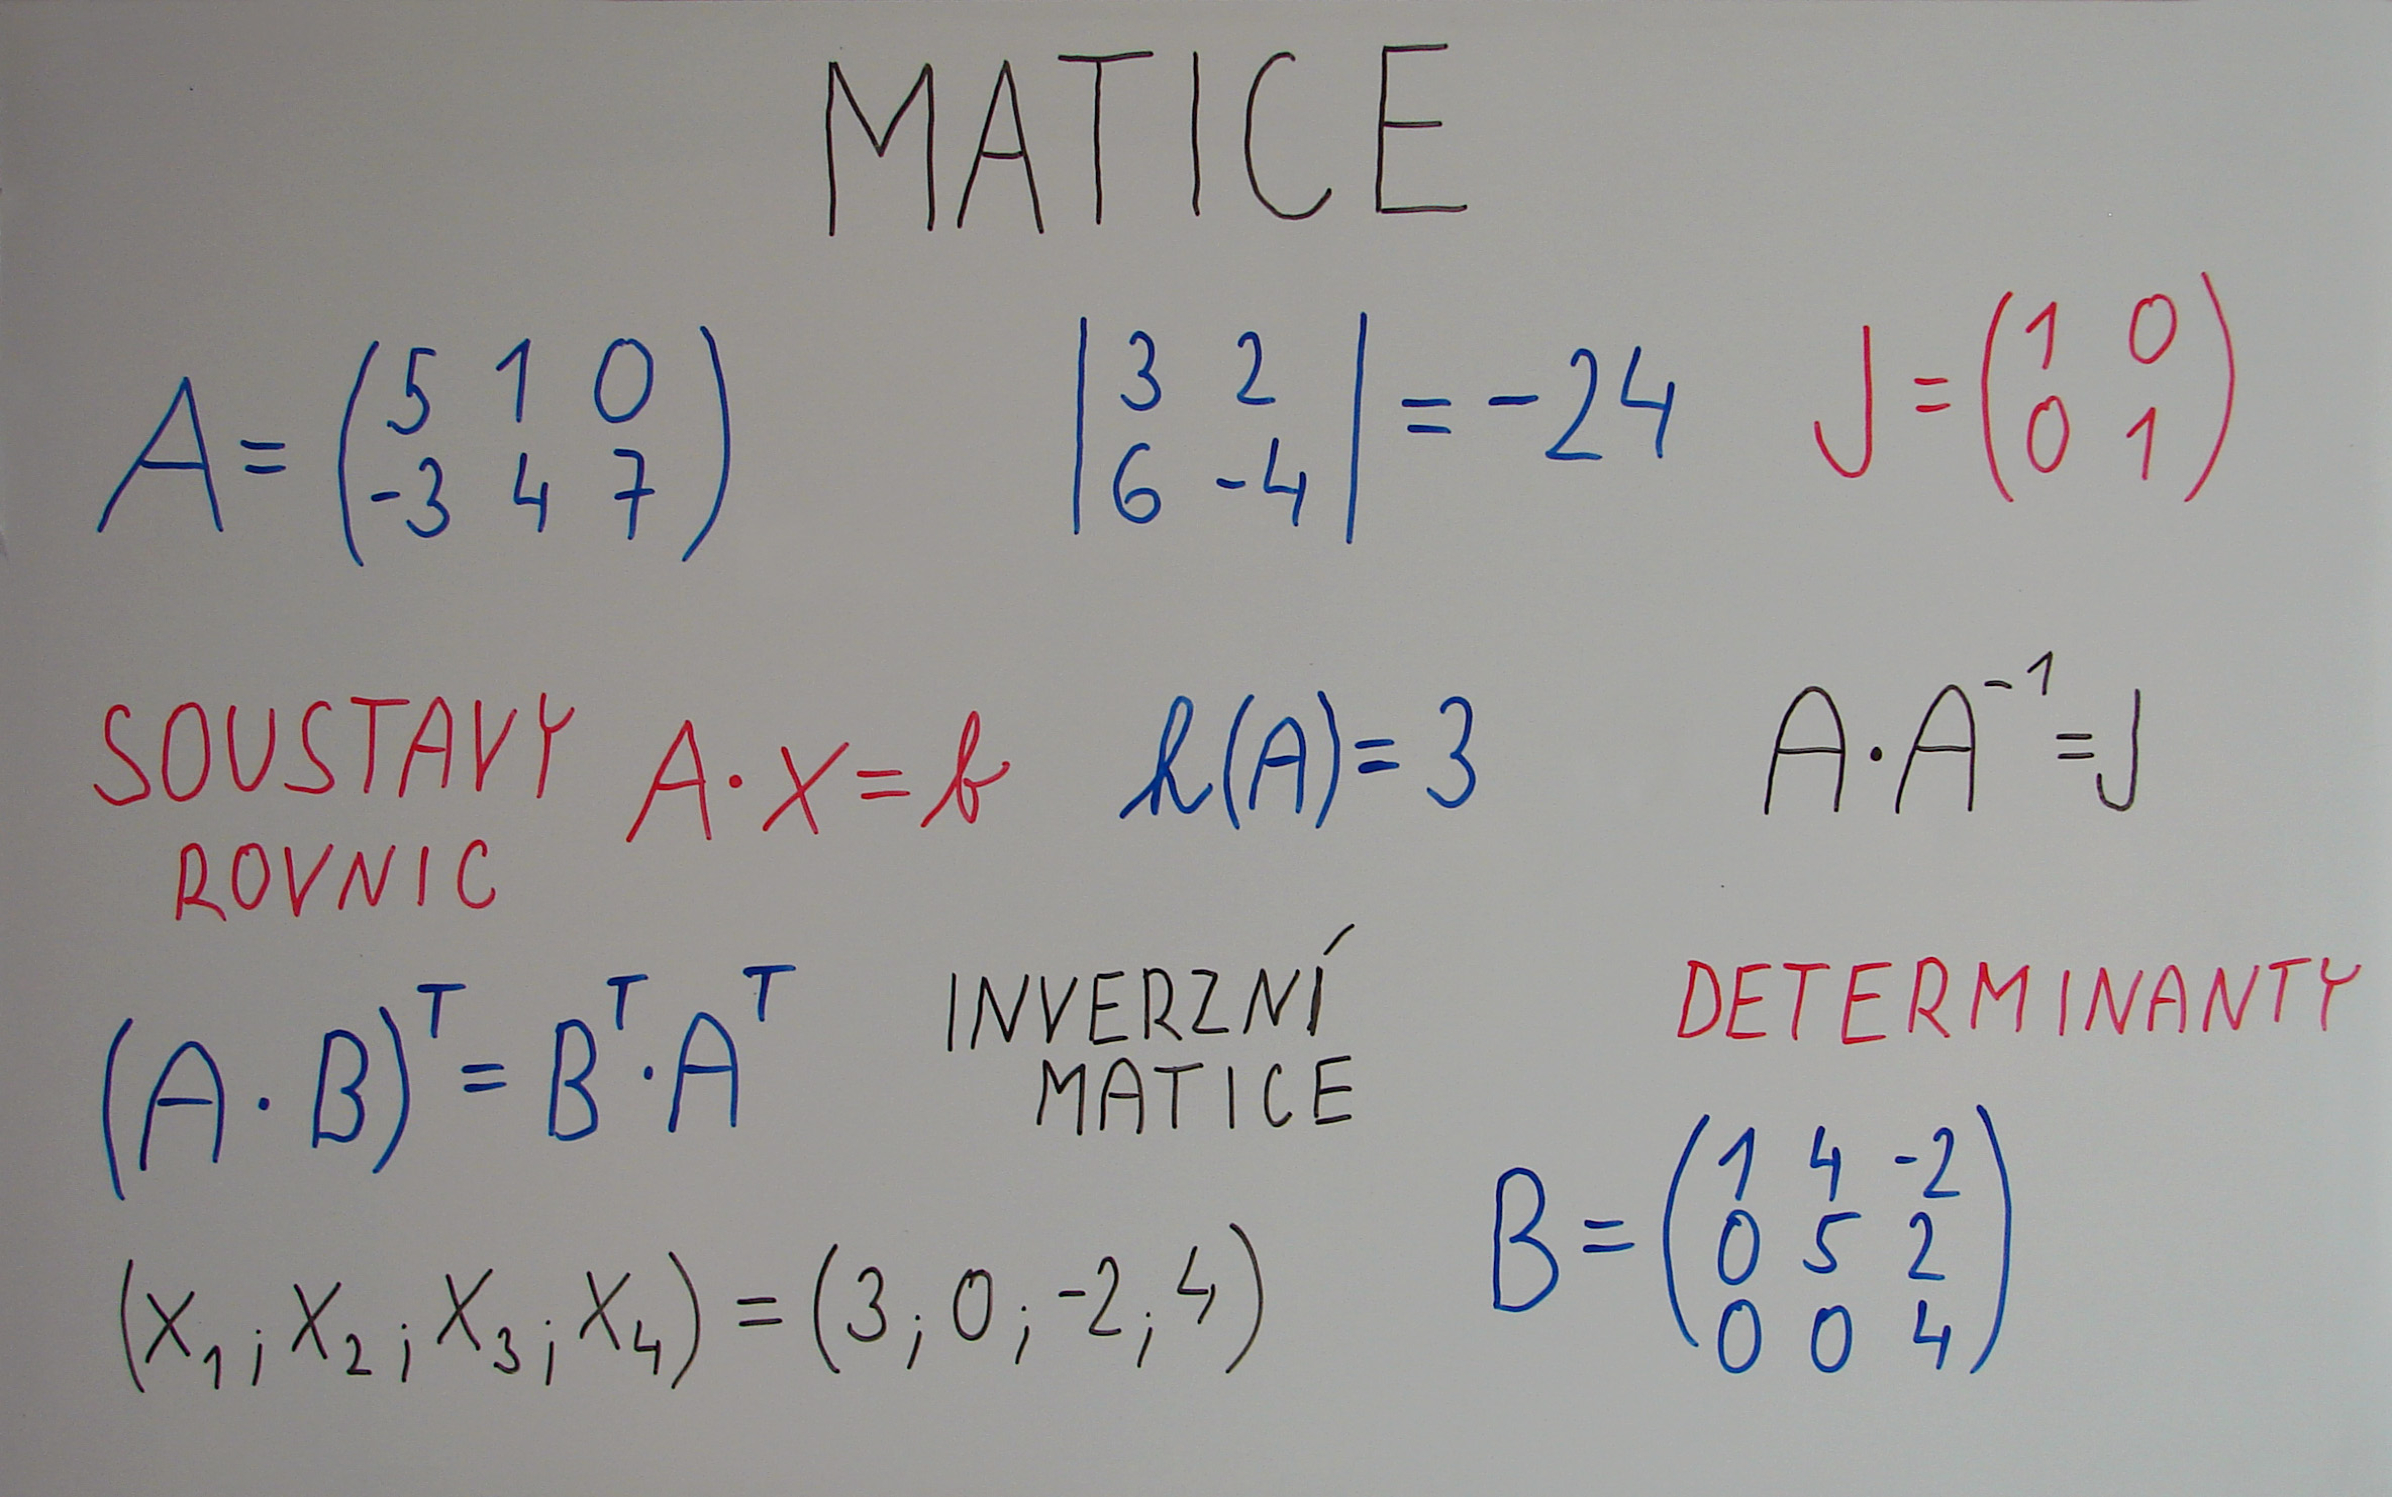 MATICE
A = (5 1 0
-3 4 7)
|3 2
6 -4| = -24
J = (1 0
0 1)
SOUSTAVY
ROVNIC
A · X = b
h(A) = 3
A · A⁻¹ = J
(A · B)ᵀ = Bᵀ · Aᵀ
INVERZNÍ
MATICE
DETERMINANTY
B = (1 4 -2
0 5 2
0 0 4)
(X₁; X₂; X₃; X₄) = (3; 0; -2; 4)